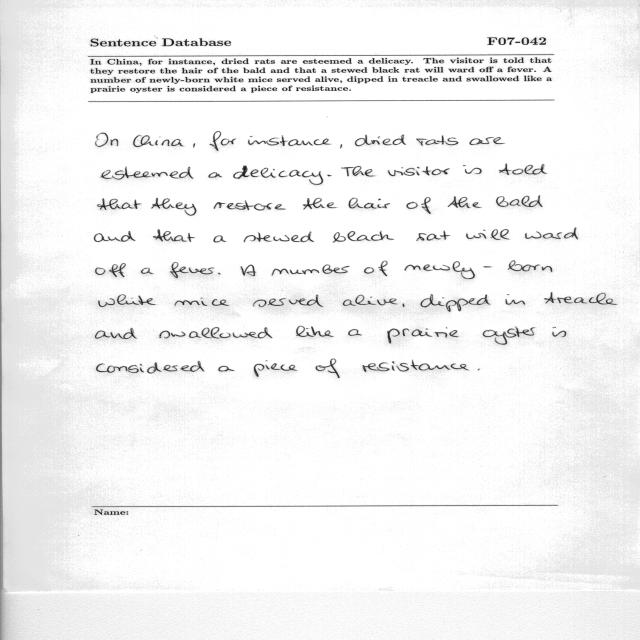 Sentence Database F07-042
In China, for instance, dried rats are esteemed a delicacy. The visitor is told that
they restore the hair of the bald and that a stewed black rat will ward off a fever. A
number of newly-born white mice served alive, dipped in treacle and swallowed like a
prairie oyster is considered a piece of resistance.
In China, for instance, dried rats are
esteemed a delicacy. The visitor is told
that they restore the hair of the bald
and that a stewed black rat will ward
off a fever. A number of newly-born
white mice served alive, dipped in treacle
and swallowed like a prairie oyster is
considered a piece of resistance.
Name: